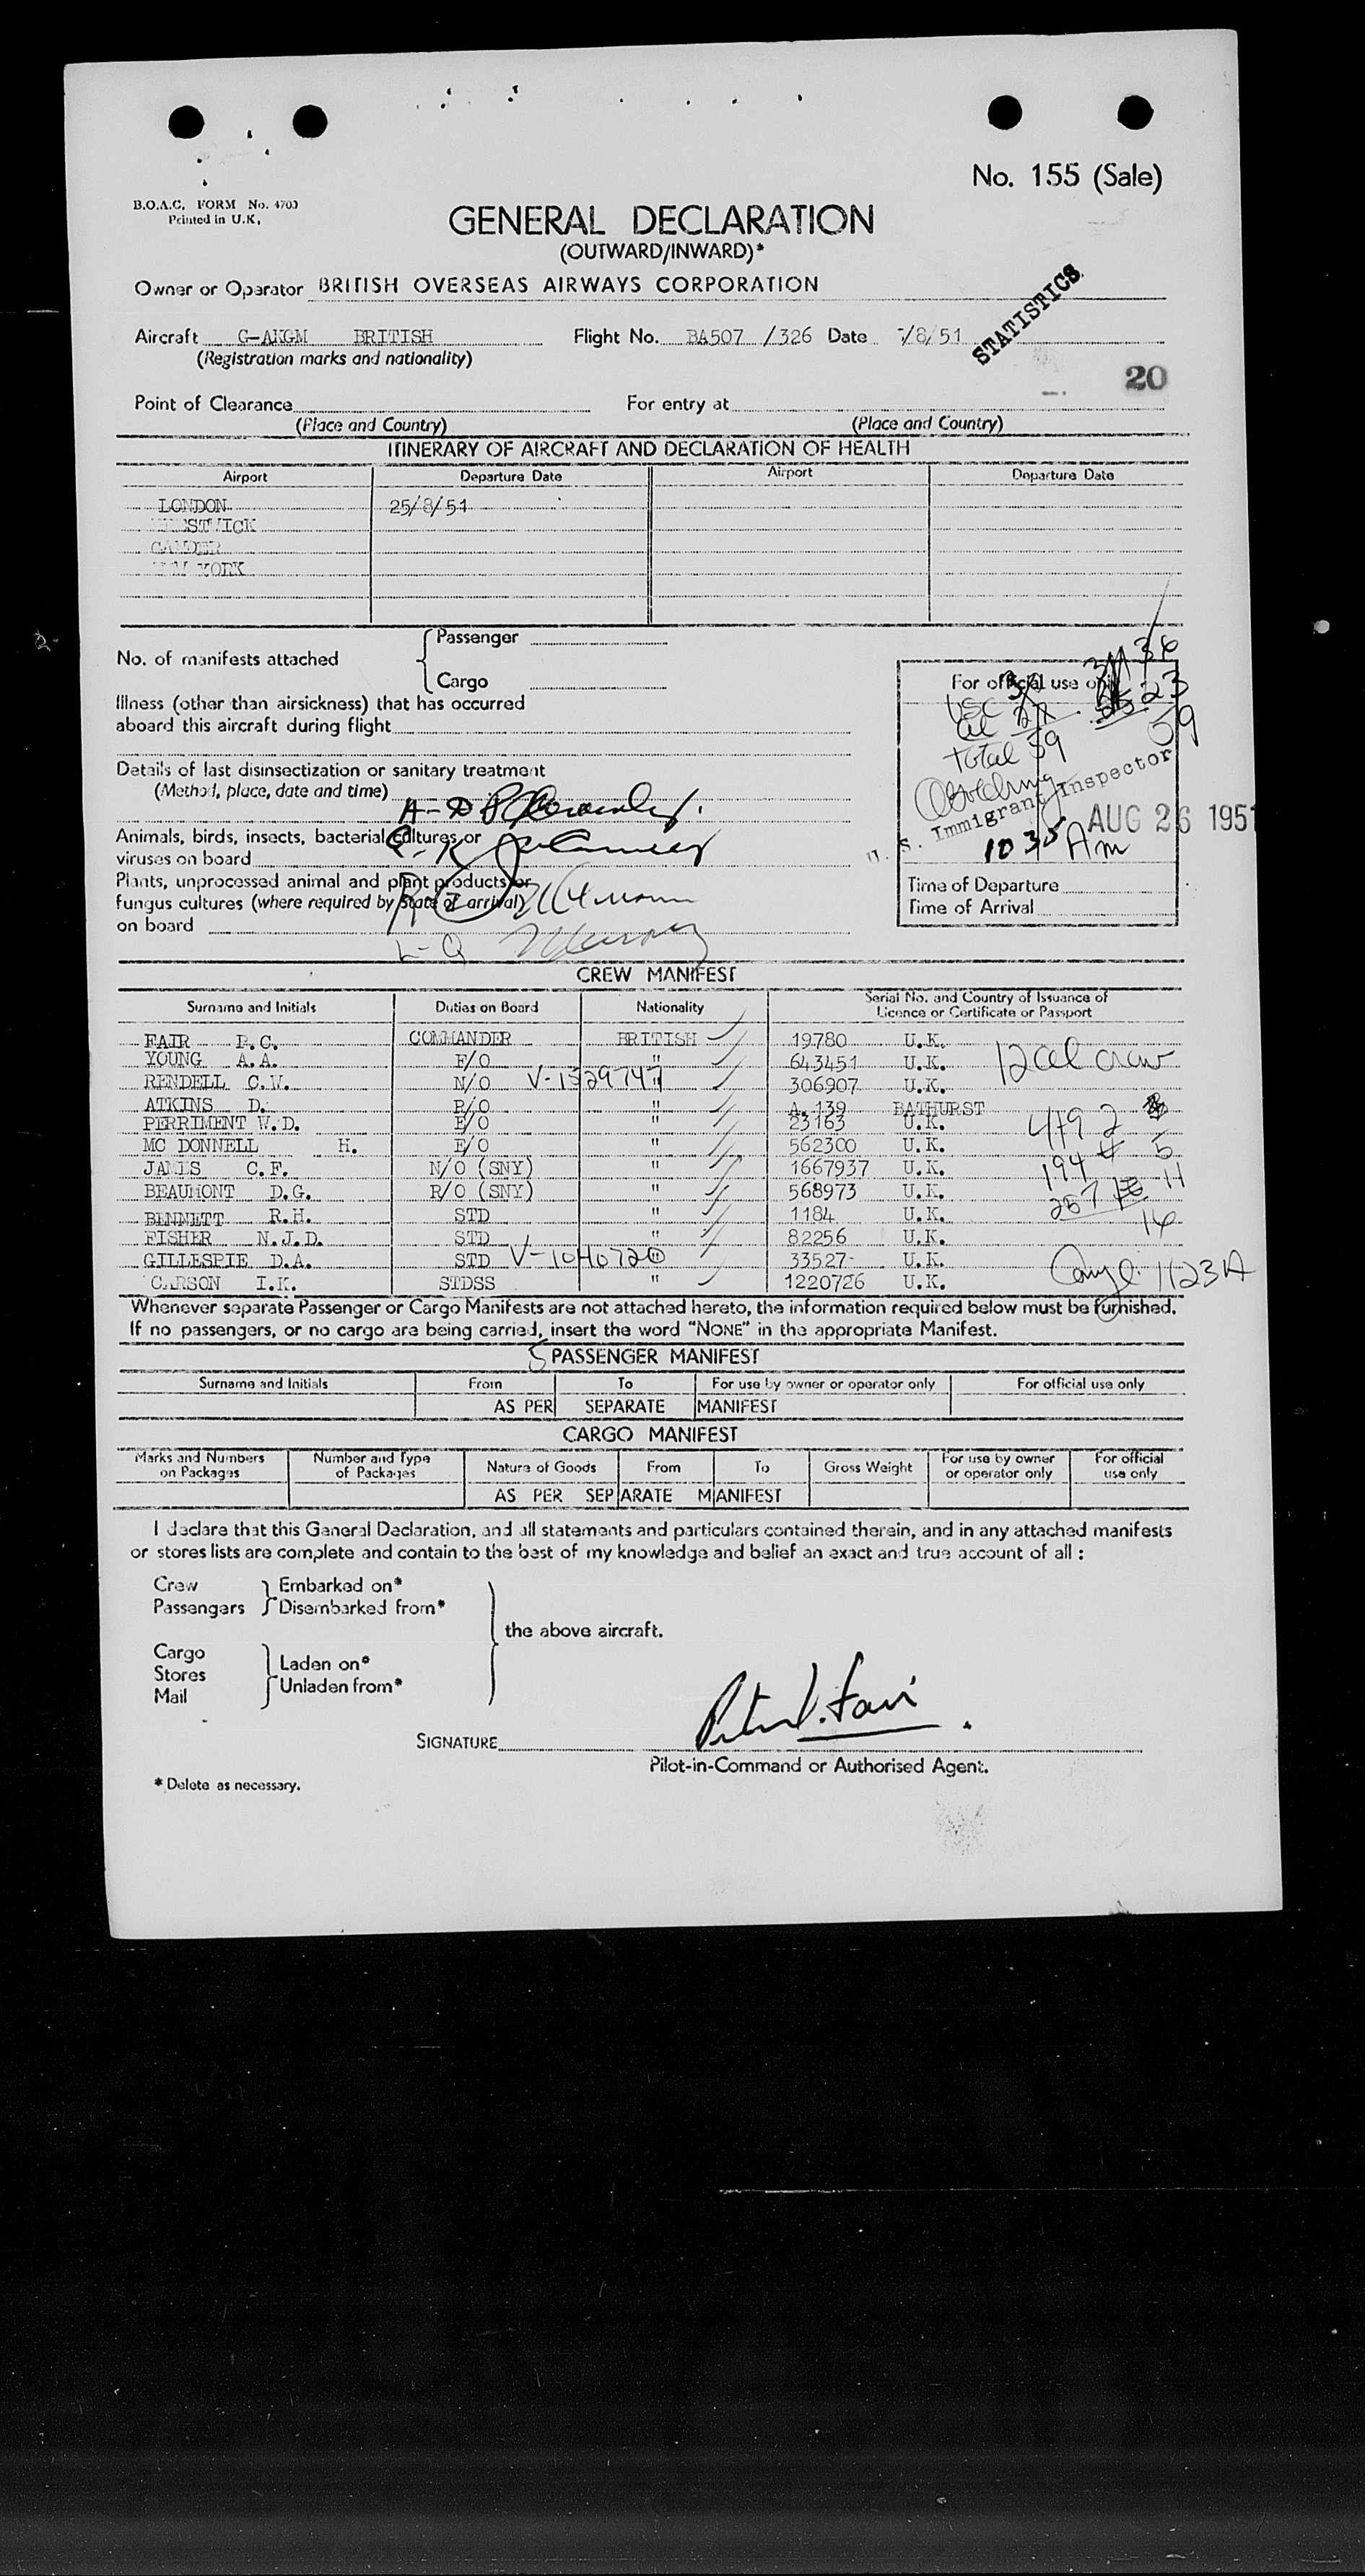 No. 155 (Sale)
B.O.A.C. FORM No. 4703
Printed in U.K.
GENERAL DECLARATION
(OUTWARD/INWARD)*
Owner or Operator BRITISH OVERSEAS AIRWAYS CORPORATION
STATISTICS
Aircraft G-AKGM BRITISH Flight No. BA507 /326 Date /8/51
(Registration marks and nationality)
20
Point of Clearance For entry at
(Place and Country) (Place and Country)
ITINERARY OF AIRCRAFT AND DECLARATION OF HEALTH
Airport Departure Date Airport Departure Date
LONDON 25/8/51
STWICK
GANDER
YORK
No. of manifests attached { Passenger
Cargo
36
For official use only
23
59
Total 59
Illness (other than airsickness) that has occurred
aboard this aircraft during flight
Details of last disinsectization or sanitary treatment
(Method, place, date and time)
A-D
U. S. Immigrant Inspector
AUG 26 1951
1035 Am
Animals, birds, insects, bacterial cultures or
viruses on board
Plants, unprocessed animal and plant products or
fungus cultures (where required by State of arrival)
on board
L-Q
Time of Departure
Time of Arrival
CREW MANIFEST
Surname and Initials Duties on Board Nationality Serial No. and Country of Issuance of
Licence or Certificate or Passport
FAIR P.C. COMMANDER BRITISH 19780 U.K.
YOUNG A.A. F/O " 643451 U.K. 12 al crew
RENDELL C.W. N/O V-1329747 " 306907 U.K.
ATKINS D. R/O " A. 139 BATHURST
PERRIMENT W.D. E/O " 23163 U.K. 419 2
MC DONNELL H. E/O " 562300 U.K. 194 5
JAMES C.F. N/O (SNY) " 1667937 U.K.
BEAUMONT D.G. R/O (SNY) " 568973 U.K. 257 11
BENNETT R.H. STD " 1184 U.K. 16
FISHER N.J.D. STD " 82256 U.K.
GILLESPIE D.A. STD V-1040720 " 33527- U.K.
CARSON I.K. STDSS " 1220726 U.K. 1123A
Whenever separate Passenger or Cargo Manifests are not attached hereto, the information required below must be furnished.
If no passengers, or no cargo are being carried, insert the word "NONE" in the appropriate Manifest.
5 PASSENGER MANIFEST
Surname and Initials From To For use by owner or operator only For official use only
AS PER SEPARATE MANIFEST
CARGO MANIFEST
Marks and Numbers on Packages Number and Type of Packages Nature of Goods From To Gross Weight For use by owner or operator only For official use only
AS PER SEPARATE MANIFEST
I declare that this General Declaration, and all statements and particulars contained therein, and in any attached manifests
or stores lists are complete and contain to the best of my knowledge and belief an exact and true account of all :
Crew } Embarked on*
Passengers } Disembarked from*
the above aircraft.
Cargo
Stores } Laden on*
Mail } Unladen from*
SIGNATURE
Pilot-in-Command or Authorised Agent.
* Delete as necessary.